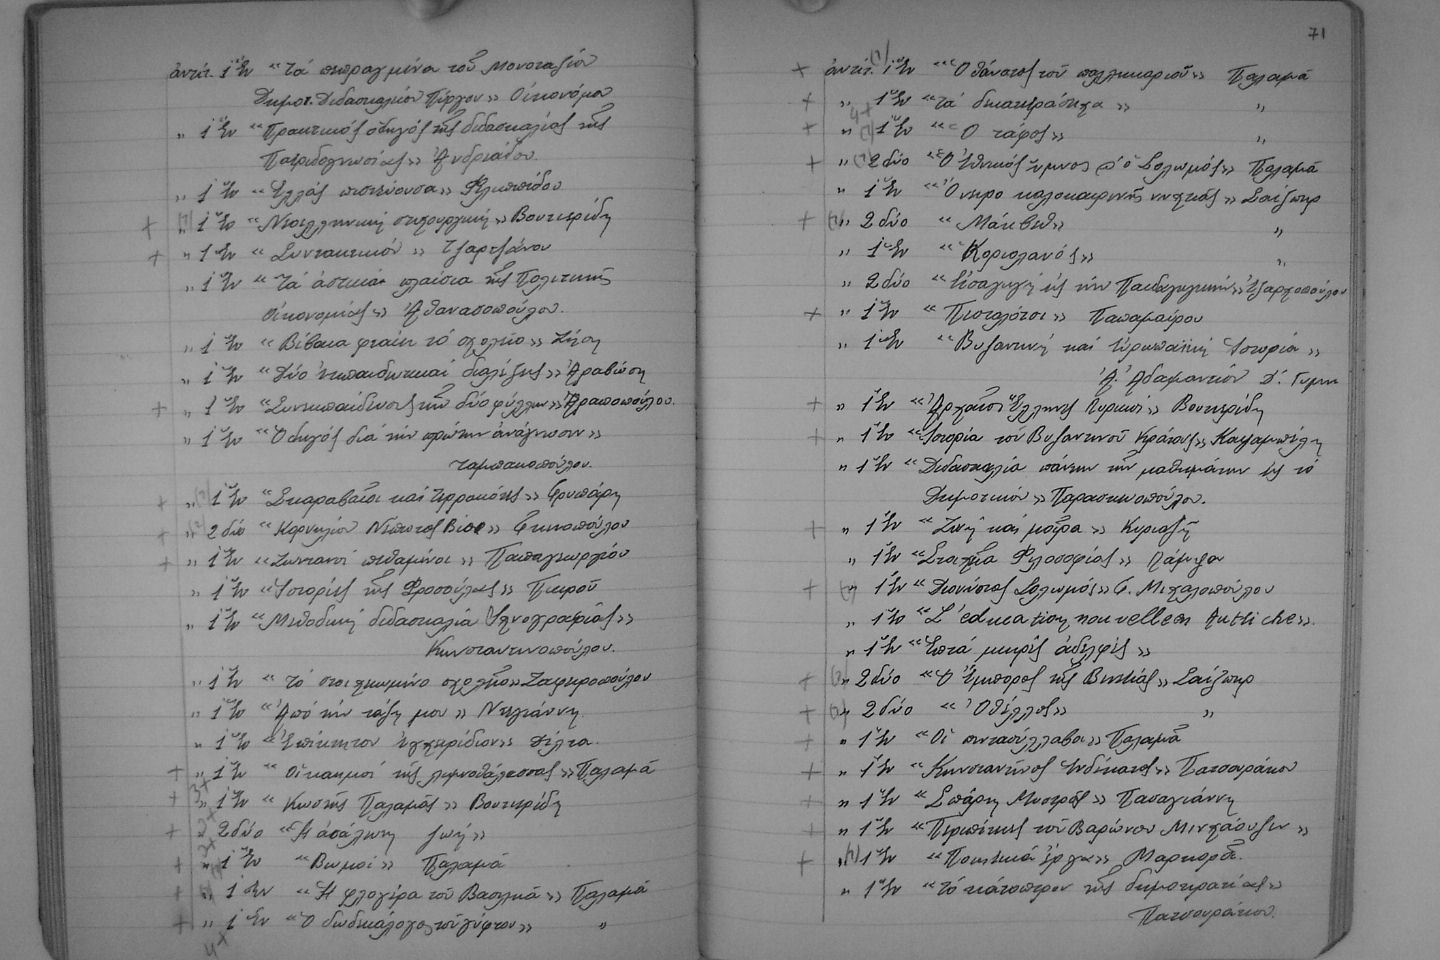 ἀντίτ. 1 ἕν "Τά πεπραγμένα τοῦ Μονοταξίου
Δημοτ. Διδασκαλείου Πύργου» Οἰκονόμου
„ 1 ἕν "Πρακτικός ὁδηγός τῆς διδασκαλίας τῆς
Πατριδογνωσίας» Ἀνδρεάδου.
„ 1 ἕν "Ἑλλάς πιστεύουσα» Φιλιππίδου
+ (2) „ 1 ἕν "Νεοελληνική στιχουργική» Βουτιερίδη
+ „ 1 ἕν "Συντακτικόν» Τζαρτζάνου
„ 1 ἕν "Τά ἀστικά πλαίσια τῆς Πολιτικῆς
Οἰκονομίας» Ἀθανασοπούλου.
„ 1 ἕν "Βίβακα φταίει τό σχολεῖο» Ζήση
„ 1 ἕν "Δύο ἐκπαιδευτικαί διαλέξεις»
+ „ 1 ἕν "Συνεκπαίδευσις τῶν δύο φύλλων»
„ 1 ἕν "Ὁδηγός διά τήν πρώτην ἀνάγνωσιν»
Ταμπακοπούλου.
+ „ 1 ἕν "Σκαραβαῖοι καί τερρακότες» Γρυπάρη
+ „ 2 δύο "Κορνηλίου Νέπωτος Βίοι»
+ „ 1 ἕν "Ζωντανοί πεθαμένοι» Παπαγεωργίου
„ 1 ἕν "Ἱστορίες τῆς Φροσούλας» Πικροῦ
„ 1 ἕν "Μεθοδική διδασκαλία Ἰχνογραφίας»
Κωνσταντινοπούλου.
„ 1 ἕν "Τό στοιχειωμένο σχολεῖο» Ζαφειροπούλου
„ 1 ἕν "Ἀπό τήν τάξη μου» Ντελιάννη.
„ 1 ἕν "Ἐπίκτητου ἐγχειρίδιον» Δέλτα.
+ „ 1 ἕν "Οἱ καημοί τῆς λιμνοθάλασσας» Παλαμᾶ
+ „ 1 ἕν "Κωστῆς Παλαμᾶς» Βουτιερίδη
+ „ 2 δύο "Ἡ ἀσάλευτη ζωή»
+ „ 1 ἕν "Βωμοί» Παλαμᾶ
+ „ 1 ἕν "Ἡ φλογέρα τοῦ Βασιλιᾶ» Παλαμᾶ
+ „ 1 ἕν "Ὁ δωδεκάλογος τοῦ γύφτου» „
4+
71
+ ἀντίτ. 1 ἕν "Ὁ θάνατος τοῦ παλληκαριοῦ» Παλαμᾶ
+ „ 1 ἕν "Τά δεκατετράστιχα» „
+ „ 1 ἕν "Ὁ τάφος» „
+ „ 2 δύο "Ὁ Ἐθνικός ὕμνος Δ. Σολωμός» Παλαμᾶ
„ 1 ἕν "Ὄνειρο καλοκαιρινῆς νυχτιᾶς» Σαίξπηρ
+ (2) „ 2 δύο "Μάκβεθ» „
„ 1 ἕν "Κοριολανός» „
„ 2 δύο "Εἰσαγωγή εἰς τήν Παιδαγωγικήν» Ἐξαρχοπούλου
+ „ 1 ἕν "Πεσταλότσι» Παπαμαύρου
„ 1 ἕν "Βυζαντινή καί Εὐρωπαϊκή Ἱστορία»
Ἀ. Ἀδαμαντίου Δ΄. Γυμν.
+ „ 1 ἕν "Ἀρχαῖοι Ἕλληνες Λυρικοί» Βουτιερίδη
+ „ 1 ἕν "Ἱστορία τοῦ Βυζαντινοῦ Κράτους» Καψαμπέλη
„ 1 ἕν "Διδασκαλία πάντων τῶν μαθημάτων εἰς τό
Δημοτικόν» Παρασκευοπούλου.
+ „ 1 ἕν "Ζωή καί μοῖρα» Κυριαζῆ
„ 1 ἕν "Στοιχεῖα Φιλοσοφίας» Λάμψα
+ „ 1 ἕν "Διονύσιος Σολωμός» Φ. Μιχαλοπούλου
„ 1 ἕν "L'éducation nouvelle»
„ 1 ἕν "Ἑπτά μικρές ἀδελφές»
+ (2) „ 2 δύο "Ὁ Ἔμπορος τῆς Βενετίας» Σαίξπηρ
+ (2) „ 2 δύο "Ὀθέλλος» „
+ „ 1 ἕν "Οἱ πεντασύλλαβοι» Παλαμᾶ
+ „ 1 ἕν "Κωνσταντῖνος ἑνδέκατος» Πατσουράκου
+ „ 1 ἕν "Σπάρτη Μυστρᾶς» Πασαγιάννη
+ „ 1 ἕν "Περιπέτειες τοῦ Βαρώνου Μινχάουζεν»
+ „ 1 ἕν "Ποιητικά ἔργα» Μαρκορᾶ.
„ 1 ἕν "Τό κάτοπτρον τῆς δημοκρατίας»
Πατσουράκου.